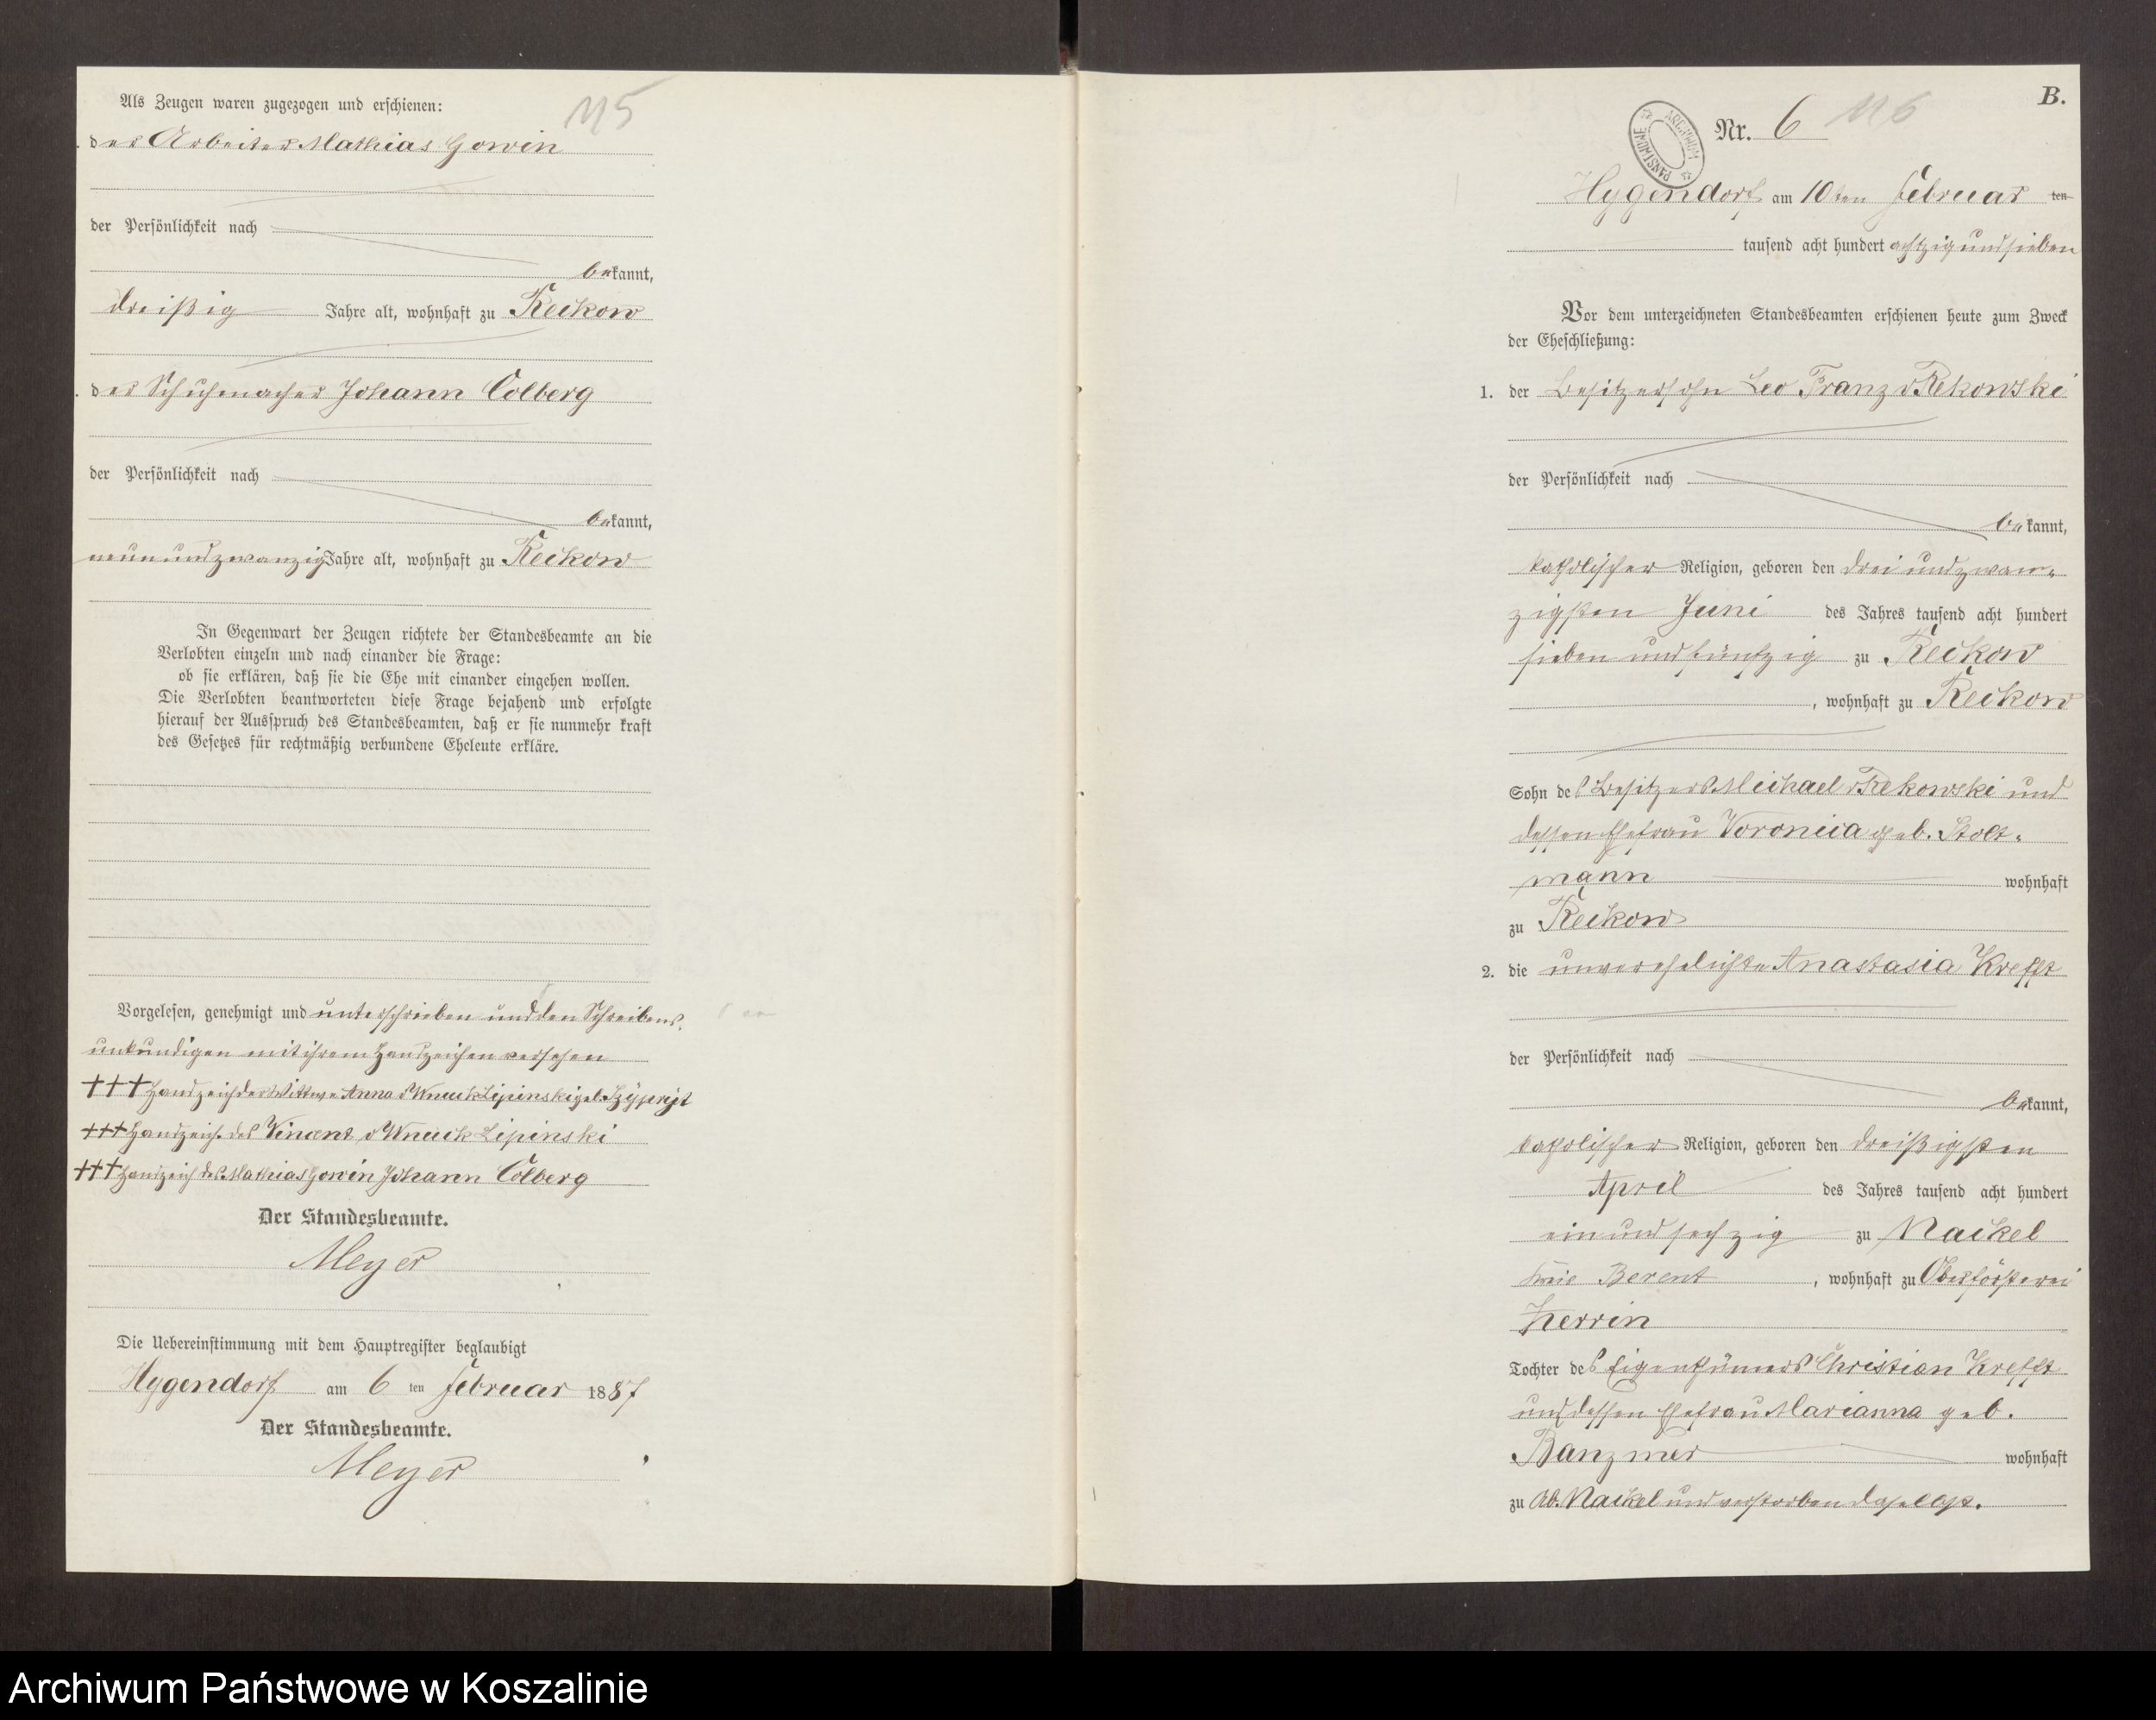 115
Als Zeugen waren zugezogen und erschienen:
der Arbeiter Mathias Gowin
der Persönlichkeit nach
bekannt,
dreißig Jahre alt, wohnhaft zu Reckow
der Schuhmacher Johann Colberg
der Persönlichkeit nach
bekannt,
neunundzwanzig Jahre alt, wohnhaft zu Reckow
In Gegenwart der Zeugen richtete der Standesbeamte an die
Verlobten einzeln und nach einander die Frage:
ob sie erklären, daß sie die Ehe mit einander eingehen wollen.
Die Verlobten beantworteten diese Frage bejahend und erfolgte
hierauf der Ausspruch des Standesbeamten, daß er sie nunmehr kraft
des Gesetzes für rechtmäßig verbundene Eheleute erkläre.
Vorgelesen, genehmigt und unterschrieben und den Schreibens
unkundigen mit ihrem Handzeichen versehen
+++ Handzeich der Wittwe Anna v Wnuck Lipinski geb.
+++ Handzeich. des Vincent v Wnuck Lipinski
+++ Handzeich des Mathias Gowin Johann Colberg
Der Standesbeamte.
Meyer
Die Uebereinstimmung mit dem Hauptregister beglaubigt
Hygendorf am 6 ten Februar 1887
Der Standesbeamte.
Meyer
B.
Nr. 6 116
ARCHIWUM PAŃSTWOWE
Hygendorf am 10ten Februar ten
tausend acht hundert achtzig und sieben
Vor dem unterzeichneten Standesbeamten erschienen heute zum Zweck
der Eheschließung:
1. der Besitzersohn Leo Franz v Rekowski
der Persönlichkeit nach
bekannt,
katholischer Religion, geboren den drei und zwan-
zigsten Juni des Jahres tausend acht hundert
sieben und fünfzig zu Reckow
, wohnhaft zu Reckow
Sohn des Besitzers Michael v Rekowski und
dessen Ehefrau Veronica geb. Stolt-
mann wohnhaft
zu Reckow
2. die unverehelichte Anastasia Krefft
der Persönlichkeit nach
bekannt,
katholischer Religion, geboren den dreißigsten
April des Jahres tausend acht hundert
ein und sechzig zu Nackel
Kreis Berent, wohnhaft zu Oberförsterei
Zerrin
Tochter des Eigenthümers Christian Krefft
und dessen Ehefrau Marianna geb.
Banzmer wohnhaft
zu Ab. Nackel und verstorben daselbst.
Archiwum Państwowe w Koszalinie